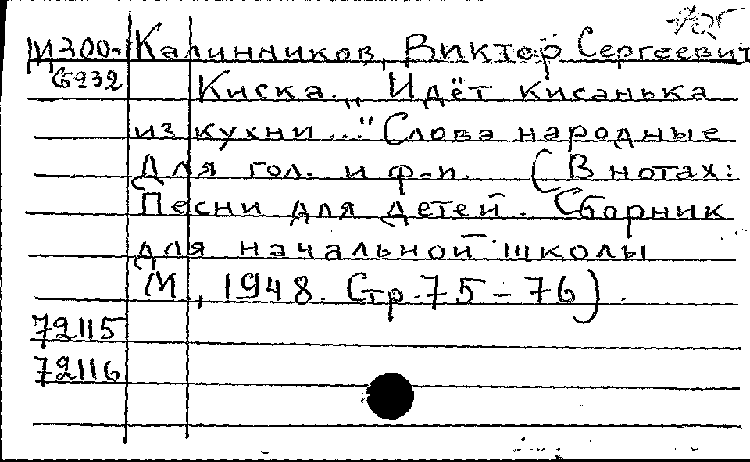 М300- Калинников, Виктор Сергеевич
6932 Киска. „Идёт кисанька
из кухни..." Слова народные
Для гол. и ф-п. (В нотах:
Песни для детей. Сборник
для начальной школы
М., 1948. Стр. 75-76).
72115
72116